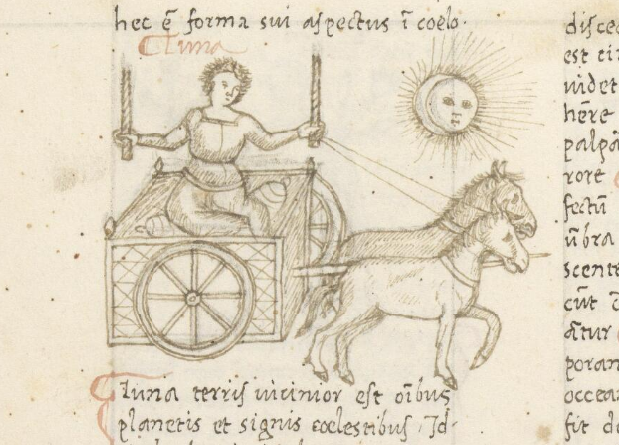 hec ē forma sui aspectus ī coelo.
Luna
Luna terris uicinior est oībus
planetis et signis coelestibus. Id-
est
uidet
hēre
palpā
rore
fectū
ūbra
scente
cūt
ātur
poran
occea
fit